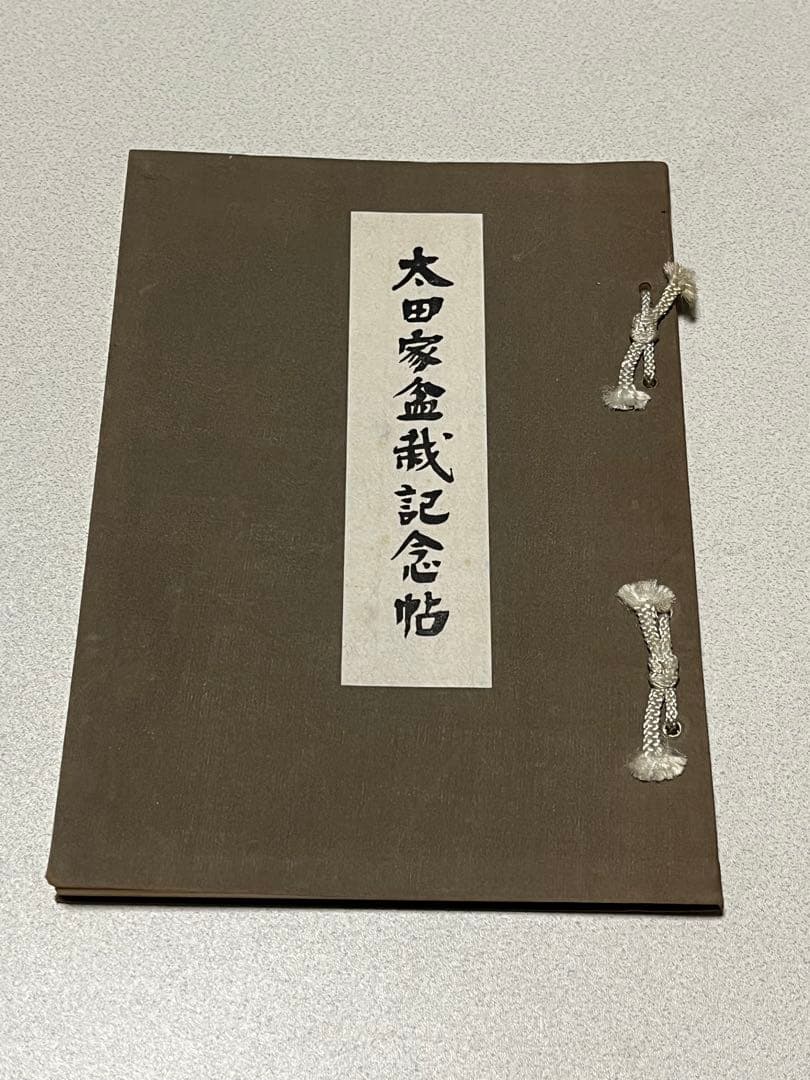 太田家盆栽記念帖